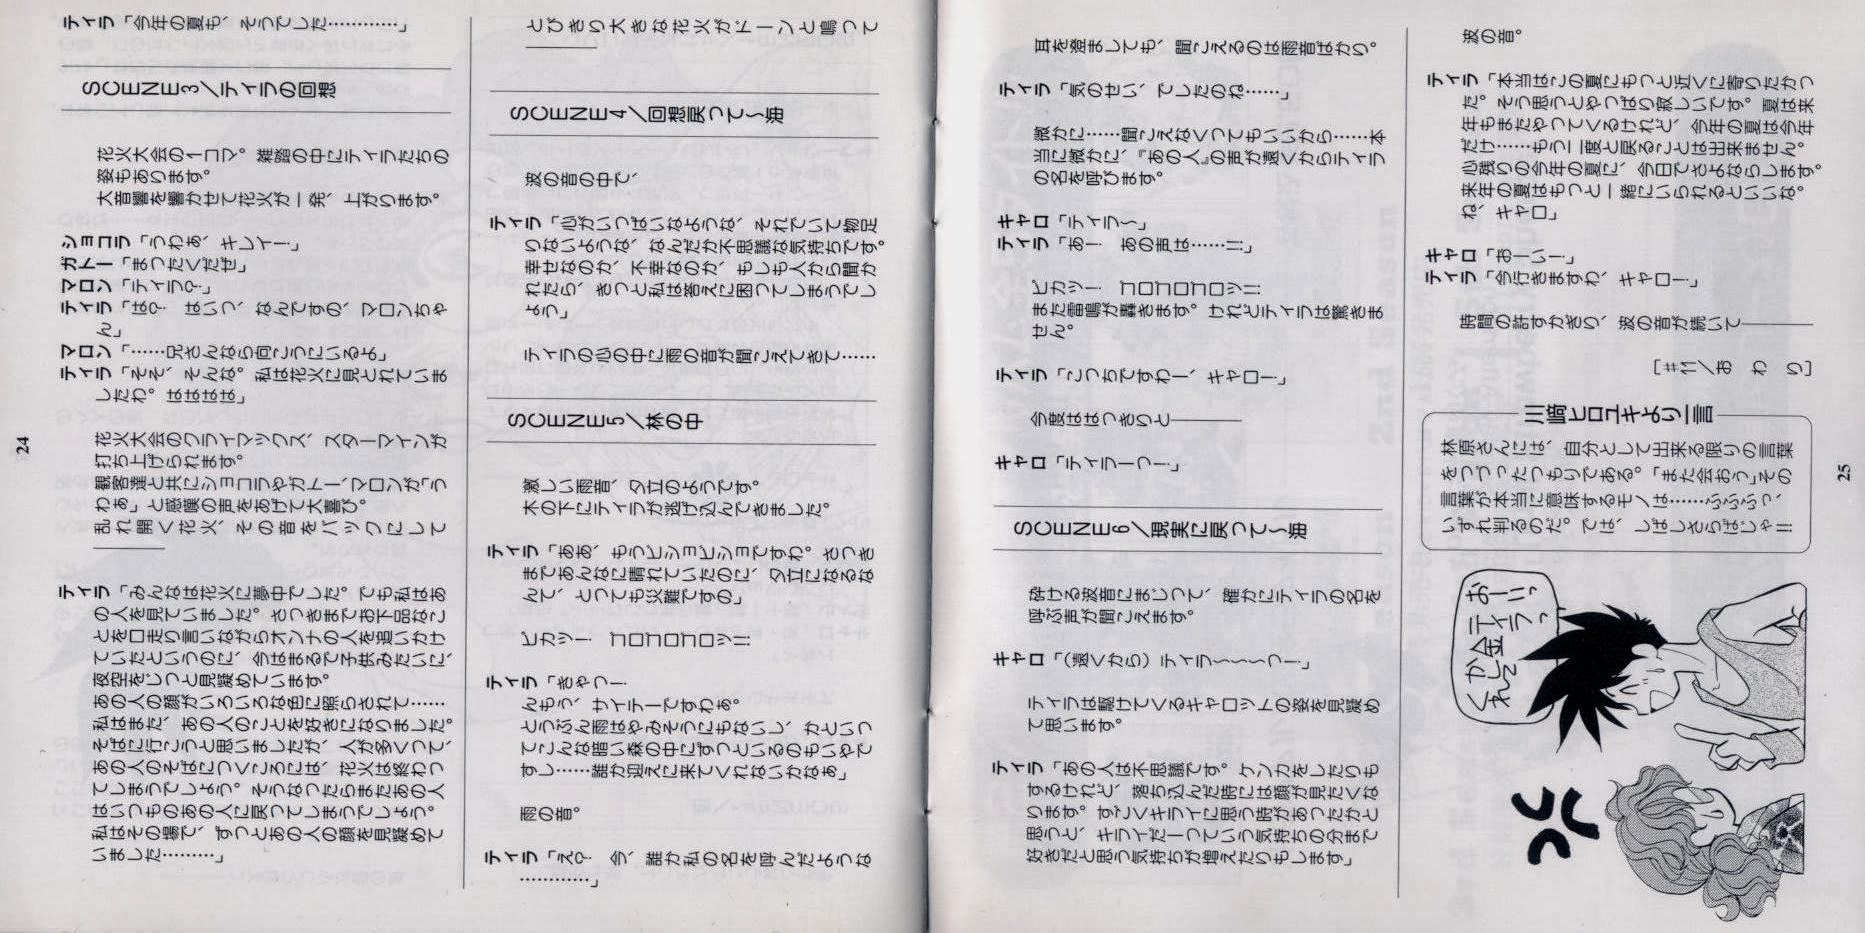 ティラ「今年の夏も、そうでした…………」
SCENE3／ティラの回想
花火大会の1コマ。雑踏の中にティラたちの
姿もあります。
大音響を響かせて花火が一発、上がります。
ショコラ「うわぁ、キレイー！」
ガトー「まったくだぜ」
マロン「ティラ？」
ティラ「は？　はいっ、なんですの、マロンちゃ
ん」
マロン「……兄さんなら向こうにいるよ」
ティラ「そそ、そんな。私は花火に見とれていま
したわ。はははは」
花火大会のクライマックス、スターマインが
打ち上げられます。
観客達と共にショコラやガトー、マロンが「う
わぁ」と感嘆の声をあげて大喜び。
乱れ開く花火、その音をバックにして
――――
ティラ「みんなは花火に夢中でした。でも私はあ
の人を見ていました。さっきまでお下品なこ
とを口走り言いながらオンナの人を追いかけ
ていたというのに、今はまるで子供みたいに、
夜空をじっと見凝めています。
あの人の顔がいろいろな色に照らされて……
私はまた、あの人のことを好きになりました。
そばに行こうと思いましたが、人が多くって、
あの人のそばにつくころには、花火は終わっ
てしまうでしょう。そうなったらまたあの人
はいつものあの人に戻ってしまうでしょう。
私はその場で、ずっとあの人の顔を見凝めて
いました………」
とびきり大きな花火がドーンと鳴って
――――
SCENE4／回想戻って～海
波の音の中で、
ティラ「心がいっぱいなような、それでいて物足
りないような、なんだか不思議な気持ちです。
幸せなのか、不幸なのか、もしも人から聞か
れたら、きっと私は答えに困ってしまうでし
ょう」
ティラの心の中に雨の音が聞こえてきて……
SCENE5／林の中
激しい雨音、夕立のようです。
木の下にティラが逃げ込んできました。
ティラ「ああ、もうビショビショですわ。さっき
まであんなに晴れていたのに、夕立になるな
んて、とっても災難ですの」
ピカッ！　ゴロゴロゴロッ!!
ティラ「きゃっ！
んもう、サイテーですわぁ。
とうぶん雨はやみそうにもないし、かといっ
てこんな暗い森の中にずっといるのもいやで
すし……誰か迎えに来てくれないかなぁ」
雨の音。
ティラ「え？　今、誰か私の名を呼んだような
…………」
24
耳を澄ましても、聞こえるのは雨音ばかり。
ティラ「気のせい、でしたのね……」
微かに……聞こえなくってもいいから……本
当に微かに、『あの人』の声が遠くからティラ
の名を呼びます。
キャロ「ティラ～」
ティラ「あ！　あの声は……!!」
ピカッ！　ゴロゴロゴロッ!!
また雷鳴が轟きます。けれどティラは驚きま
せん。
ティラ「こっちですわー、キャロー！」
今度ははっきりと――――
キャロ「ティラーっ！」
SCENE6／現実に戻って～海
砕ける波音にまじって、確かにティラの名を
呼ぶ声が聞こえます。
キャロ「（遠くから）ティラ～～～っ！」
ティラは駆けてくるキャロットの姿を見凝め
て思います。
ティラ「あの人は不思議です。ケンカをしたりも
するけれど、落ち込んだ時には顔が見たくな
ります。すごくキライに思う時があったかと
思うと、キライだーっていう気持ちの分まで
好きだと思う気持ちが増えたりもします」
波の音。
ティラ「本当はこの夏にもっと近くに寄りたかっ
た。そう思うとやっぱり寂しいです。夏は来
年もまたやってくるけれど、今年の夏は今年
だけ……もう二度と戻ることは出来ません。
心残りの今年の夏に、今日でさよならします。
来年の夏はもっと一緒にいられるといいな。
ね、キャロ」
キャロ「おーい！」
ティラ「今行きますわ、キャロー！」
時間の許すかぎり、波の音が続いて――――
［＃11／お　わ　り］
川崎ヒロユキより一言
林原さんには、自分として出来る限りの言葉
をつづったつもりである。「また会おう」その
言葉が本当に意味するモノは……ふふふっ、
いずれ判るのだ。では、しばしさらばじゃ!!
おーいっ
ティラっ
金
かして
くれ
25